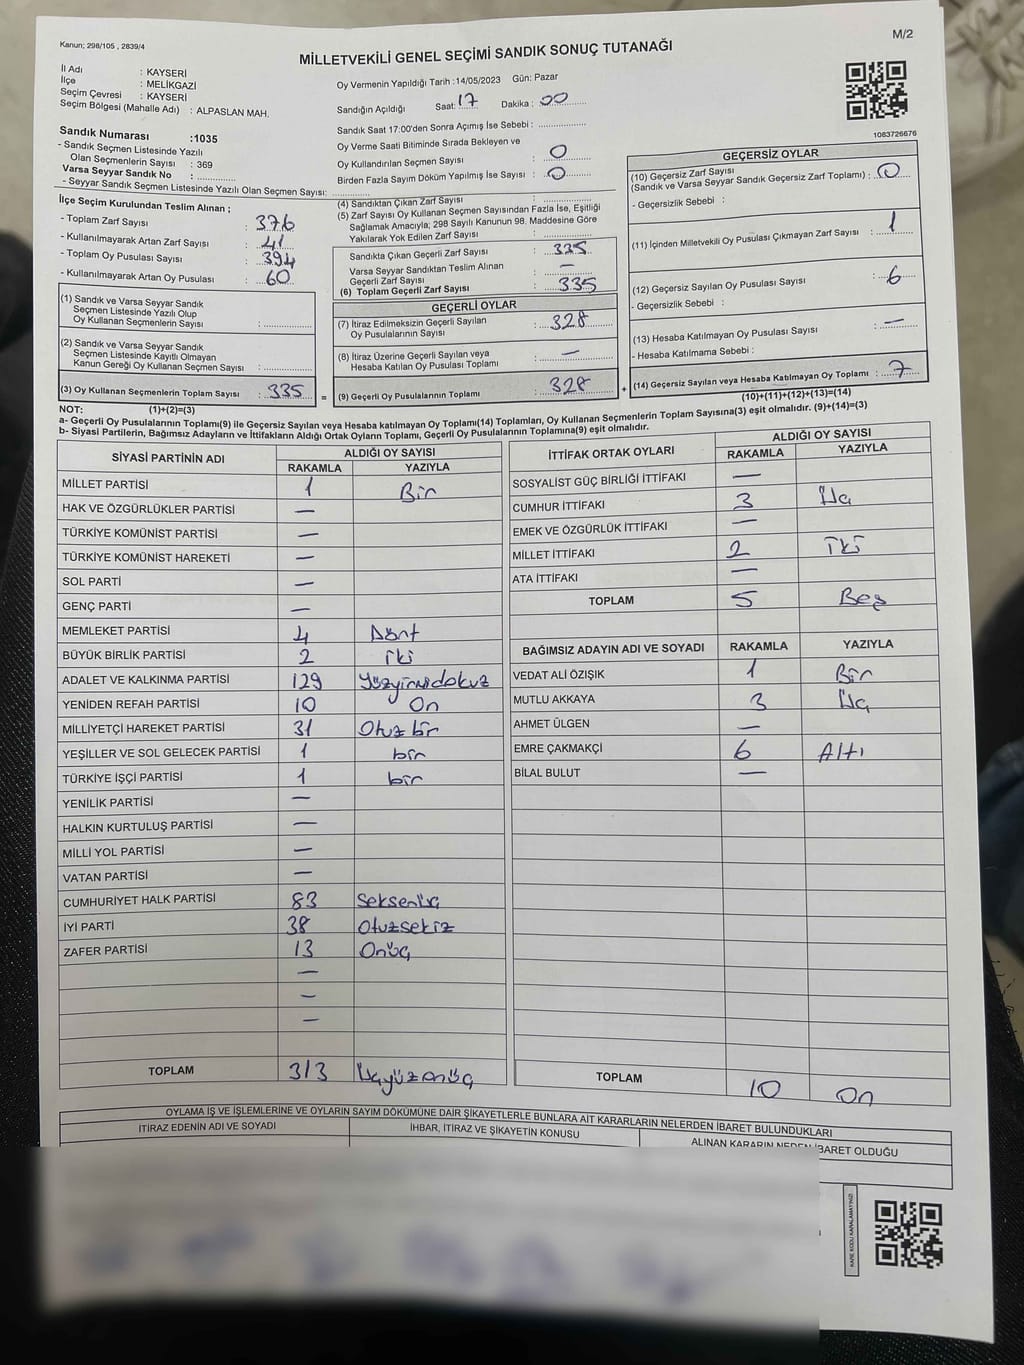 Kanun; 298/105 , 2839/4
M/2
MİLLETVEKİLİ GENEL SEÇİMİ SANDIK SONUÇ TUTANAĞI
İl Adı : KAYSERİ
İlçe : MELİKGAZİ
Seçim Çevresi : KAYSERİ
Seçim Bölgesi (Mahalle Adı) : ALPASLAN MAH.
Sandık Numarası :1035
- Sandık Seçmen Listesinde Yazılı
Olan Seçmenlerin Sayısı : 369
Varsa Seyyar Sandık No : ..............
- Seyyar Sandık Seçmen Listesinde Yazılı Olan Seçmen Sayısı: ..............
Oy Vermenin Yapıldığı Tarih :14/05/2023 Gün: Pazar
Sandığın Açıldığı Saat: 17 Dakika : 00
Sandık Saat 17:00'den Sonra Açımış İse Sebebi : ..............
Oy Verme Saati Bitiminde Sırada Bekleyen ve
Oy Kullandırılan Seçmen Sayısı : 0
Birden Fazla Sayım Döküm Yapılmış İse Sayısı : 0
1083726676
İlçe Seçim Kurulundan Teslim Alınan ;
- Toplam Zarf Sayısı : 376
- Kullanılmayarak Artan Zarf Sayısı : 41
- Toplam Oy Pusulası Sayısı : 394
- Kullanılmayarak Artan Oy Pusulası : 60
(1) Sandık ve Varsa Seyyar Sandık
Seçmen Listesinde Yazılı Olup
Oy Kullanan Seçmenlerin Sayısı : ..............
(2) Sandık ve Varsa Seyyar Sandık
Seçmen Listesinde Kayıtlı Olmayan
Kanun Gereği Oy Kullanan Seçmen Sayısı : ..............
(3) Oy Kullanan Seçmenlerin Toplam Sayısı : 335 =
(4) Sandıktan Çıkan Zarf Sayısı : ..............
(5) Zarf Sayısı Oy Kullanan Seçmen Sayısından Fazla İse, Eşitliği
Sağlamak Amacıyla; 298 Sayılı Kanunun 98. Maddesine Göre
Yakılarak Yok Edilen Zarf Sayısı : ..............
Sandıkta Çıkan Geçerli Zarf Sayısı : 335
Varsa Seyyar Sandıktan Teslim Alınan
Geçerli Zarf Sayısı : —
(6) Toplam Geçerli Zarf Sayısı : 335
GEÇERLİ OYLAR
(7) İtiraz Edilmeksizin Geçerli Sayılan
Oy Pusulalarının Sayısı : 328
(8) İtiraz Üzerine Geçerli Sayılan veya
Hesaba Katılan Oy Pusulası Toplamı : —
(9) Geçerli Oy Pusulalarının Toplamı : 328 +
GEÇERSİZ OYLAR
(10) Geçersiz Zarf Sayısı
(Sandık ve Varsa Seyyar Sandık Geçersiz Zarf Toplamı) : 0
- Geçersizlik Sebebi :
(11) İçinden Milletvekili Oy Pusulası Çıkmayan Zarf Sayısı : 1
(12) Geçersiz Sayılan Oy Pusulası Sayısı : 6
- Geçersizlik Sebebi :
(13) Hesaba Katılmayan Oy Pusulası Sayısı : —
- Hesaba Katılmama Sebebi :
(14) Geçersiz Sayılan veya Hesaba Katılmayan Oy Toplamı : 7
(10)+(11)+(12)+(13)=(14)
NOT: (1)+(2)=(3)
a- Geçerli Oy Pusulasının Toplamı(9) ile Geçersiz Sayılan veya Hesaba katılmayan Oy Toplamı(14) Toplamları, Oy Kullanan Seçmenlerin Toplam Sayısına(3) eşit olmalıdır. (9)+(14)=(3)
b- Siyasi Partilerin, Bağımsız Adayların ve İttifakların Aldığı Ortak Oyların Toplamı, Geçerli Oy Pusulalarının Toplamına(9) eşit olmalıdır.
SİYASİ PARTİNİN ADI ALDIĞI OY SAYISI
RAKAMLA YAZIYLA
MİLLET PARTİSİ 1 Bir
HAK VE ÖZGÜRLÜKLER PARTİSİ —
TÜRKİYE KOMÜNİST PARTİSİ —
TÜRKİYE KOMÜNİST HAREKETİ —
SOL PARTİ —
GENÇ PARTİ —
MEMLEKET PARTİSİ 4 Dört
BÜYÜK BİRLİK PARTİSİ 2 iki
ADALET VE KALKINMA PARTİSİ 129 Yüzyirmidokuz
YENİDEN REFAH PARTİSİ 10 On
MİLLİYETÇİ HAREKET PARTİSİ 31 Otuz bir
YEŞİLLER VE SOL GELECEK PARTİSİ 1 bir
TÜRKİYE İŞÇİ PARTİSİ 1 bir
YENİLİK PARTİSİ —
HALKIN KURTULUŞ PARTİSİ —
MİLLİ YOL PARTİSİ —
VATAN PARTİSİ —
CUMHURİYET HALK PARTİSİ 83 Seksenüç
İYİ PARTİ 38 Otuzsekiz
ZAFER PARTİSİ 13 Onüç
—
—
—
TOPLAM 313 Üçyüzonüç
İTTİFAK ORTAK OYLARI ALDIĞI OY SAYISI
RAKAMLA YAZIYLA
SOSYALİST GÜÇ BİRLİĞİ İTTİFAKI —
CUMHUR İTTİFAKI 3 Üç
EMEK VE ÖZGÜRLÜK İTTİFAKI —
MİLLET İTTİFAKI 2 iki
ATA İTTİFAKI —
TOPLAM 5 Beş
BAĞIMSIZ ADAYIN ADI VE SOYADI RAKAMLA YAZIYLA
VEDAT ALİ ÖZIŞIK 1 Bir
MUTLU AKKAYA 3 Üç
AHMET ÜLGEN —
EMRE ÇAKMAKÇİ 6 Altı
BİLAL BULUT —
TOPLAM 10 On
OYLAMA İŞ VE İŞLEMLERİNE VE OYLARIN SAYIM DÖKÜMÜNE DAİR ŞİKAYETLERLE BUNLARA AİT KARARLARIN NELERDEN İBARET BULUNDUKLARI
İTİRAZ EDENİN ADI VE SOYADI İHBAR, İTİRAZ VE ŞİKAYETİN KONUSU ALINAN KARARIN NEDEN İBARET OLDUĞU
KARE KODU KARALAMAYINIZ!